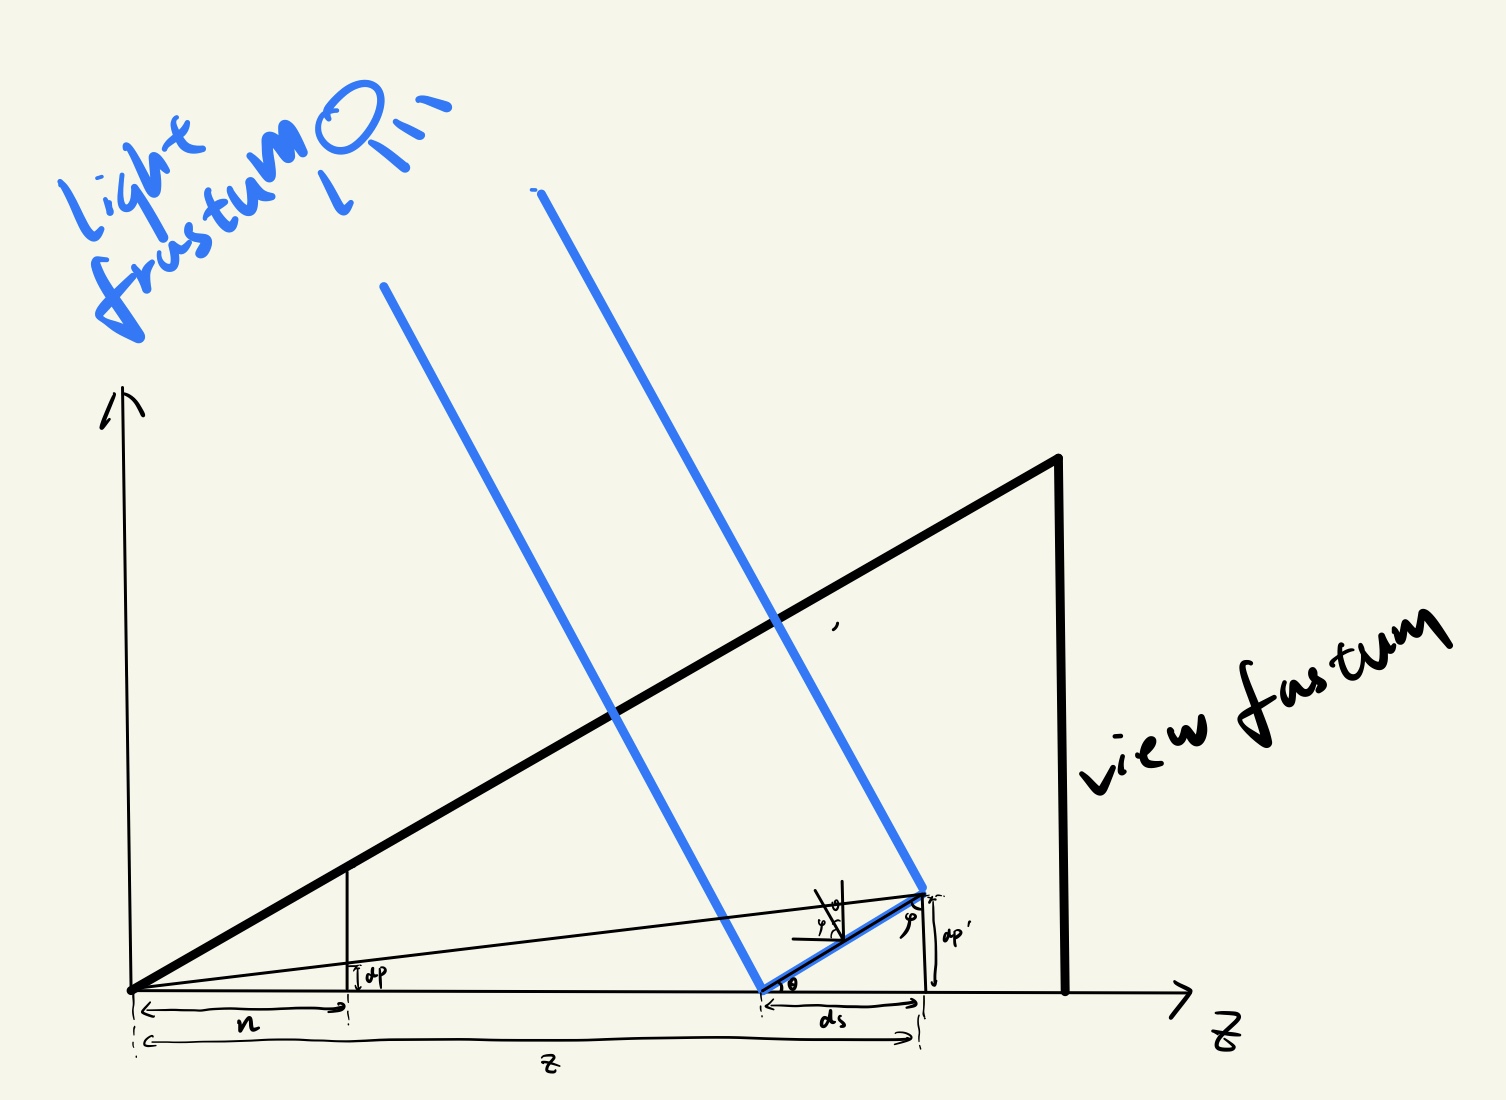 light
frustum
view fastum
θ
φ
φ
dp'
dp
θ
n
ds
z
Z